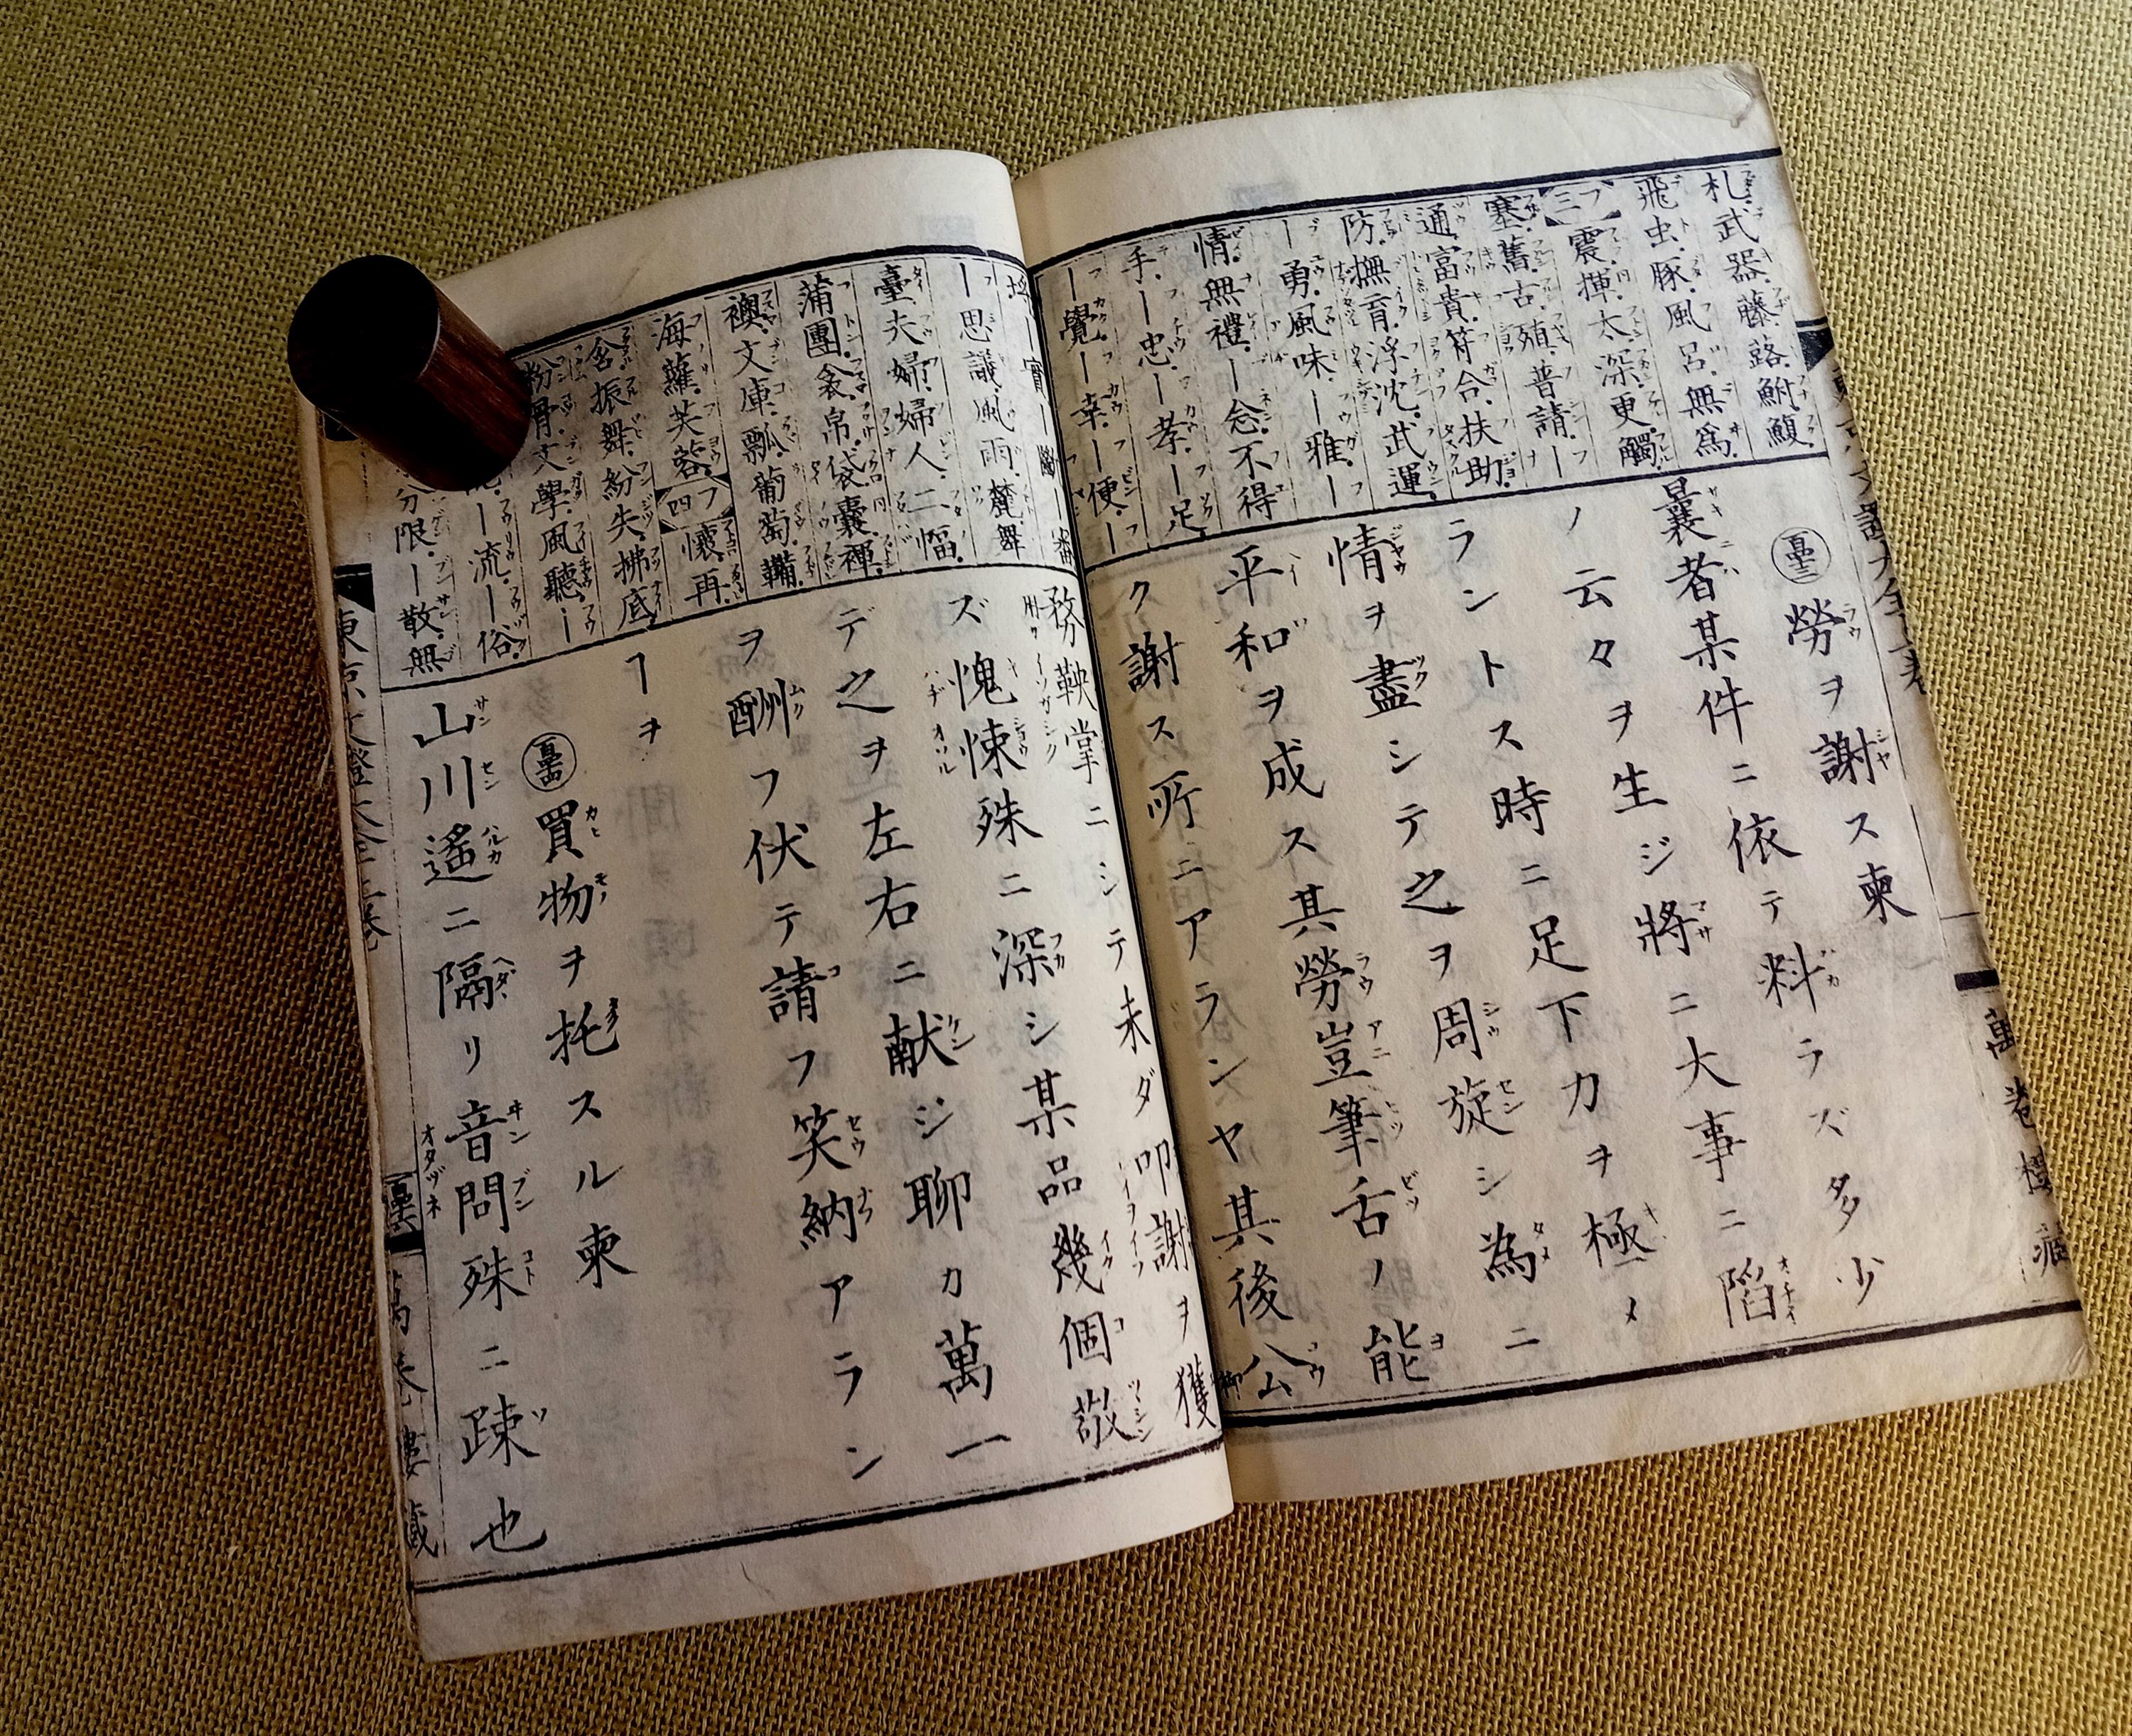 札.武器.藤.蕗.鮒.鰒.
飛虫.豚.風呂.無爲.
三フ 震.揮.太.深.更.觸.
塞.舊.古.殖.普請.ー
通.富貴.符合.扶助.
防.撫育.浮沈.武運.
ー勇.風味.ー雅.ー
情.無禮.ー念.不得
手.ー忠.ー孝.ー足.
ー覺.ー幸.ー便.ー
勞ヲ謝ス柬
曩者某件ニ依テ料ラズ多少
ノ云々ヲ生ジ將ニ大事ニ陷
ラントス時ニ足下力ヲ極メ
情ヲ盡シテ之ヲ周旋シ為ニ
平和ヲ成ス其勞豈筆舌ノ能
ク謝ス所ニアランヤ其後公
萬卷樓藏
ー思議.風雨.麓.舞
臺.夫婦.婦人.二幅.
蒲團.衾.帛.袋.嚢.褌.
襖.文庫.瓢.葡萄.鞴.
海蘿.芙蓉.四フ 懷.再.
含.振舞.紛失.拂底.
粉骨.文學.風聽.ー
ー流.ー俗.
分限.ー散.無
務鞅掌ニシテ未ダ叩謝ヲ獲
ズ愧悚殊ニ深シ某品幾個敬
デ之ヲ左右ニ献ジ聊カ萬一
ヲ酬フ伏テ請フ笑納アラン
ヿヲ
買物ヲ托スル柬
山川遙ニ隔リ音問殊ニ踈也
東京文證大全二卷
萬卷樓藏